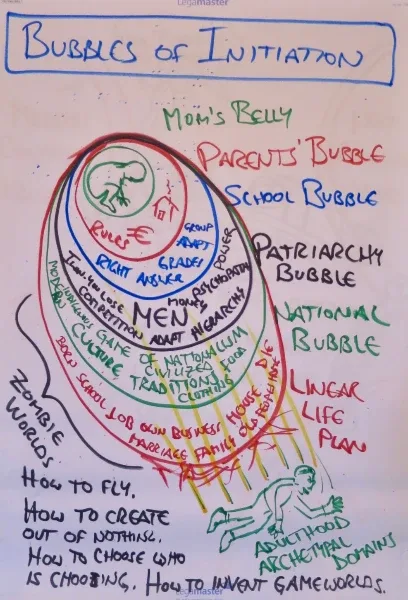 Legamaster
BUBBLES OF INITIATION
MOM'S BELLY
PARENTS' BUBBLE
SCHOOL BUBBLE
PATRIARCHY
BUBBLE
NATIONAL
BUBBLE
LINEAR
LIFE
PLAN
RULES €
GROUP
ADAPT
GRADES
RIGHT ANSWER
I WIN, YOU LOSE
COMPETITION
MEN
MONEY
ADAPT
HIERARCHY
PSYCHOPATHY
POWER
MODERN
CULTURE
GAME OF NATIONALISM
CIVILIZED
TRADITIONS
FOOD
CLOTHING
BORN SCHOOL JOB OWN BUSINESS HOUSE DIE
MARRIAGE FAMILY OLD PEOPLE HOME
ZOMBIE
WORLDS
HOW TO FLY.
HOW TO CREATE
OUT OF NOTHING.
HOW TO CHOOSE WHO
IS CHOOSING. HOW TO INVENT GAMEWORLDS.
ADULTHOOD
ARCHETYPAL DOMAINS
Legamaster